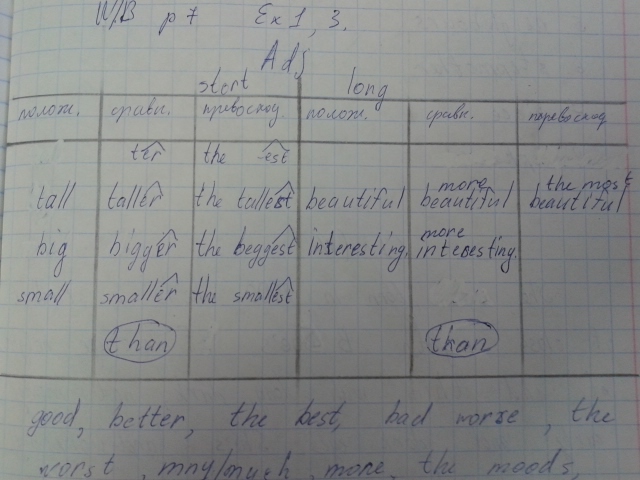 W/B p 7 Ex 1, 3.
Adj
start long
полож. сравн. превосход полож. сравн. перевосход
+er the -est
tall taller the tallest beautiful more beautiful the most beautiful
big bigger the beggest interesting, more interesting.
small smaller the smallest
than than
good, better, the best, bad worse, the
worst, mny/much, more, the moods,